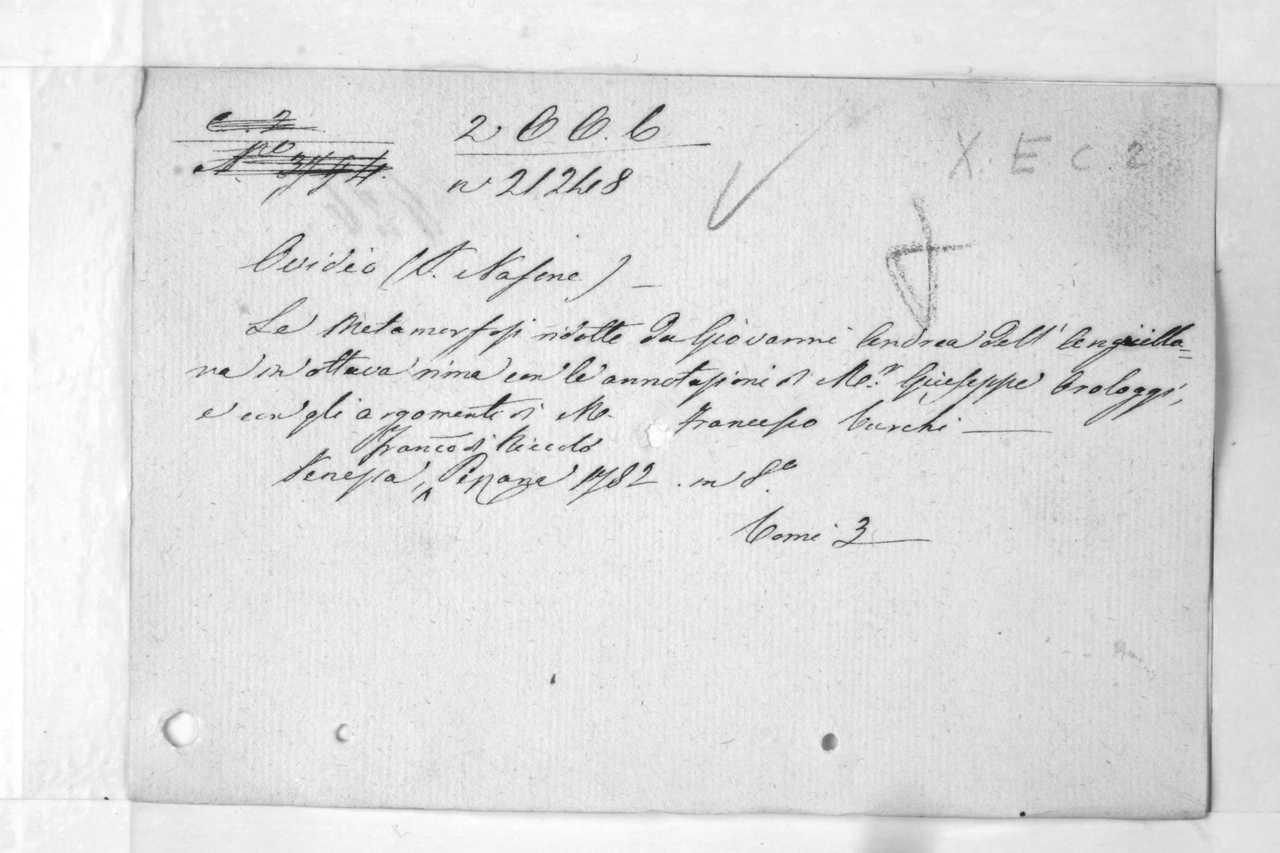 X. E C. 2
n 21248
Ovidio (P. Nasone) —
Le Metamorfosi ridotte da Giovanni Andrea dell' Anguilla=
ra in ottava rima con le annotazioni di M.r Giuseppe Orologgi,
e con gli argomenti di M. Francesco Turchi —
Franc.o di Niccolò
Venezia, Pezzana 1782. in 8.o
Tomi 3